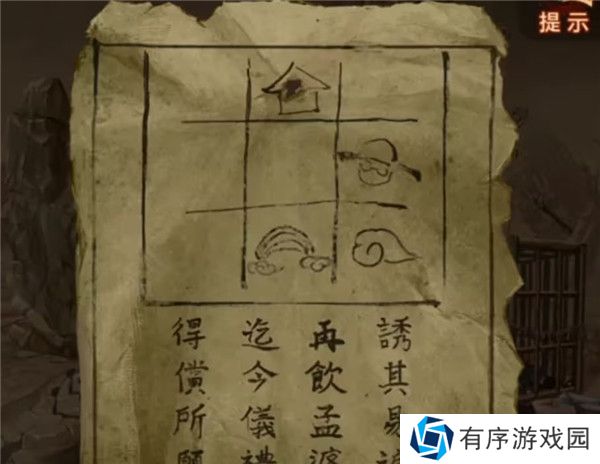 提示
誘其易
再飲孟婆
迄今儀禮
得償所願
有序游戏园